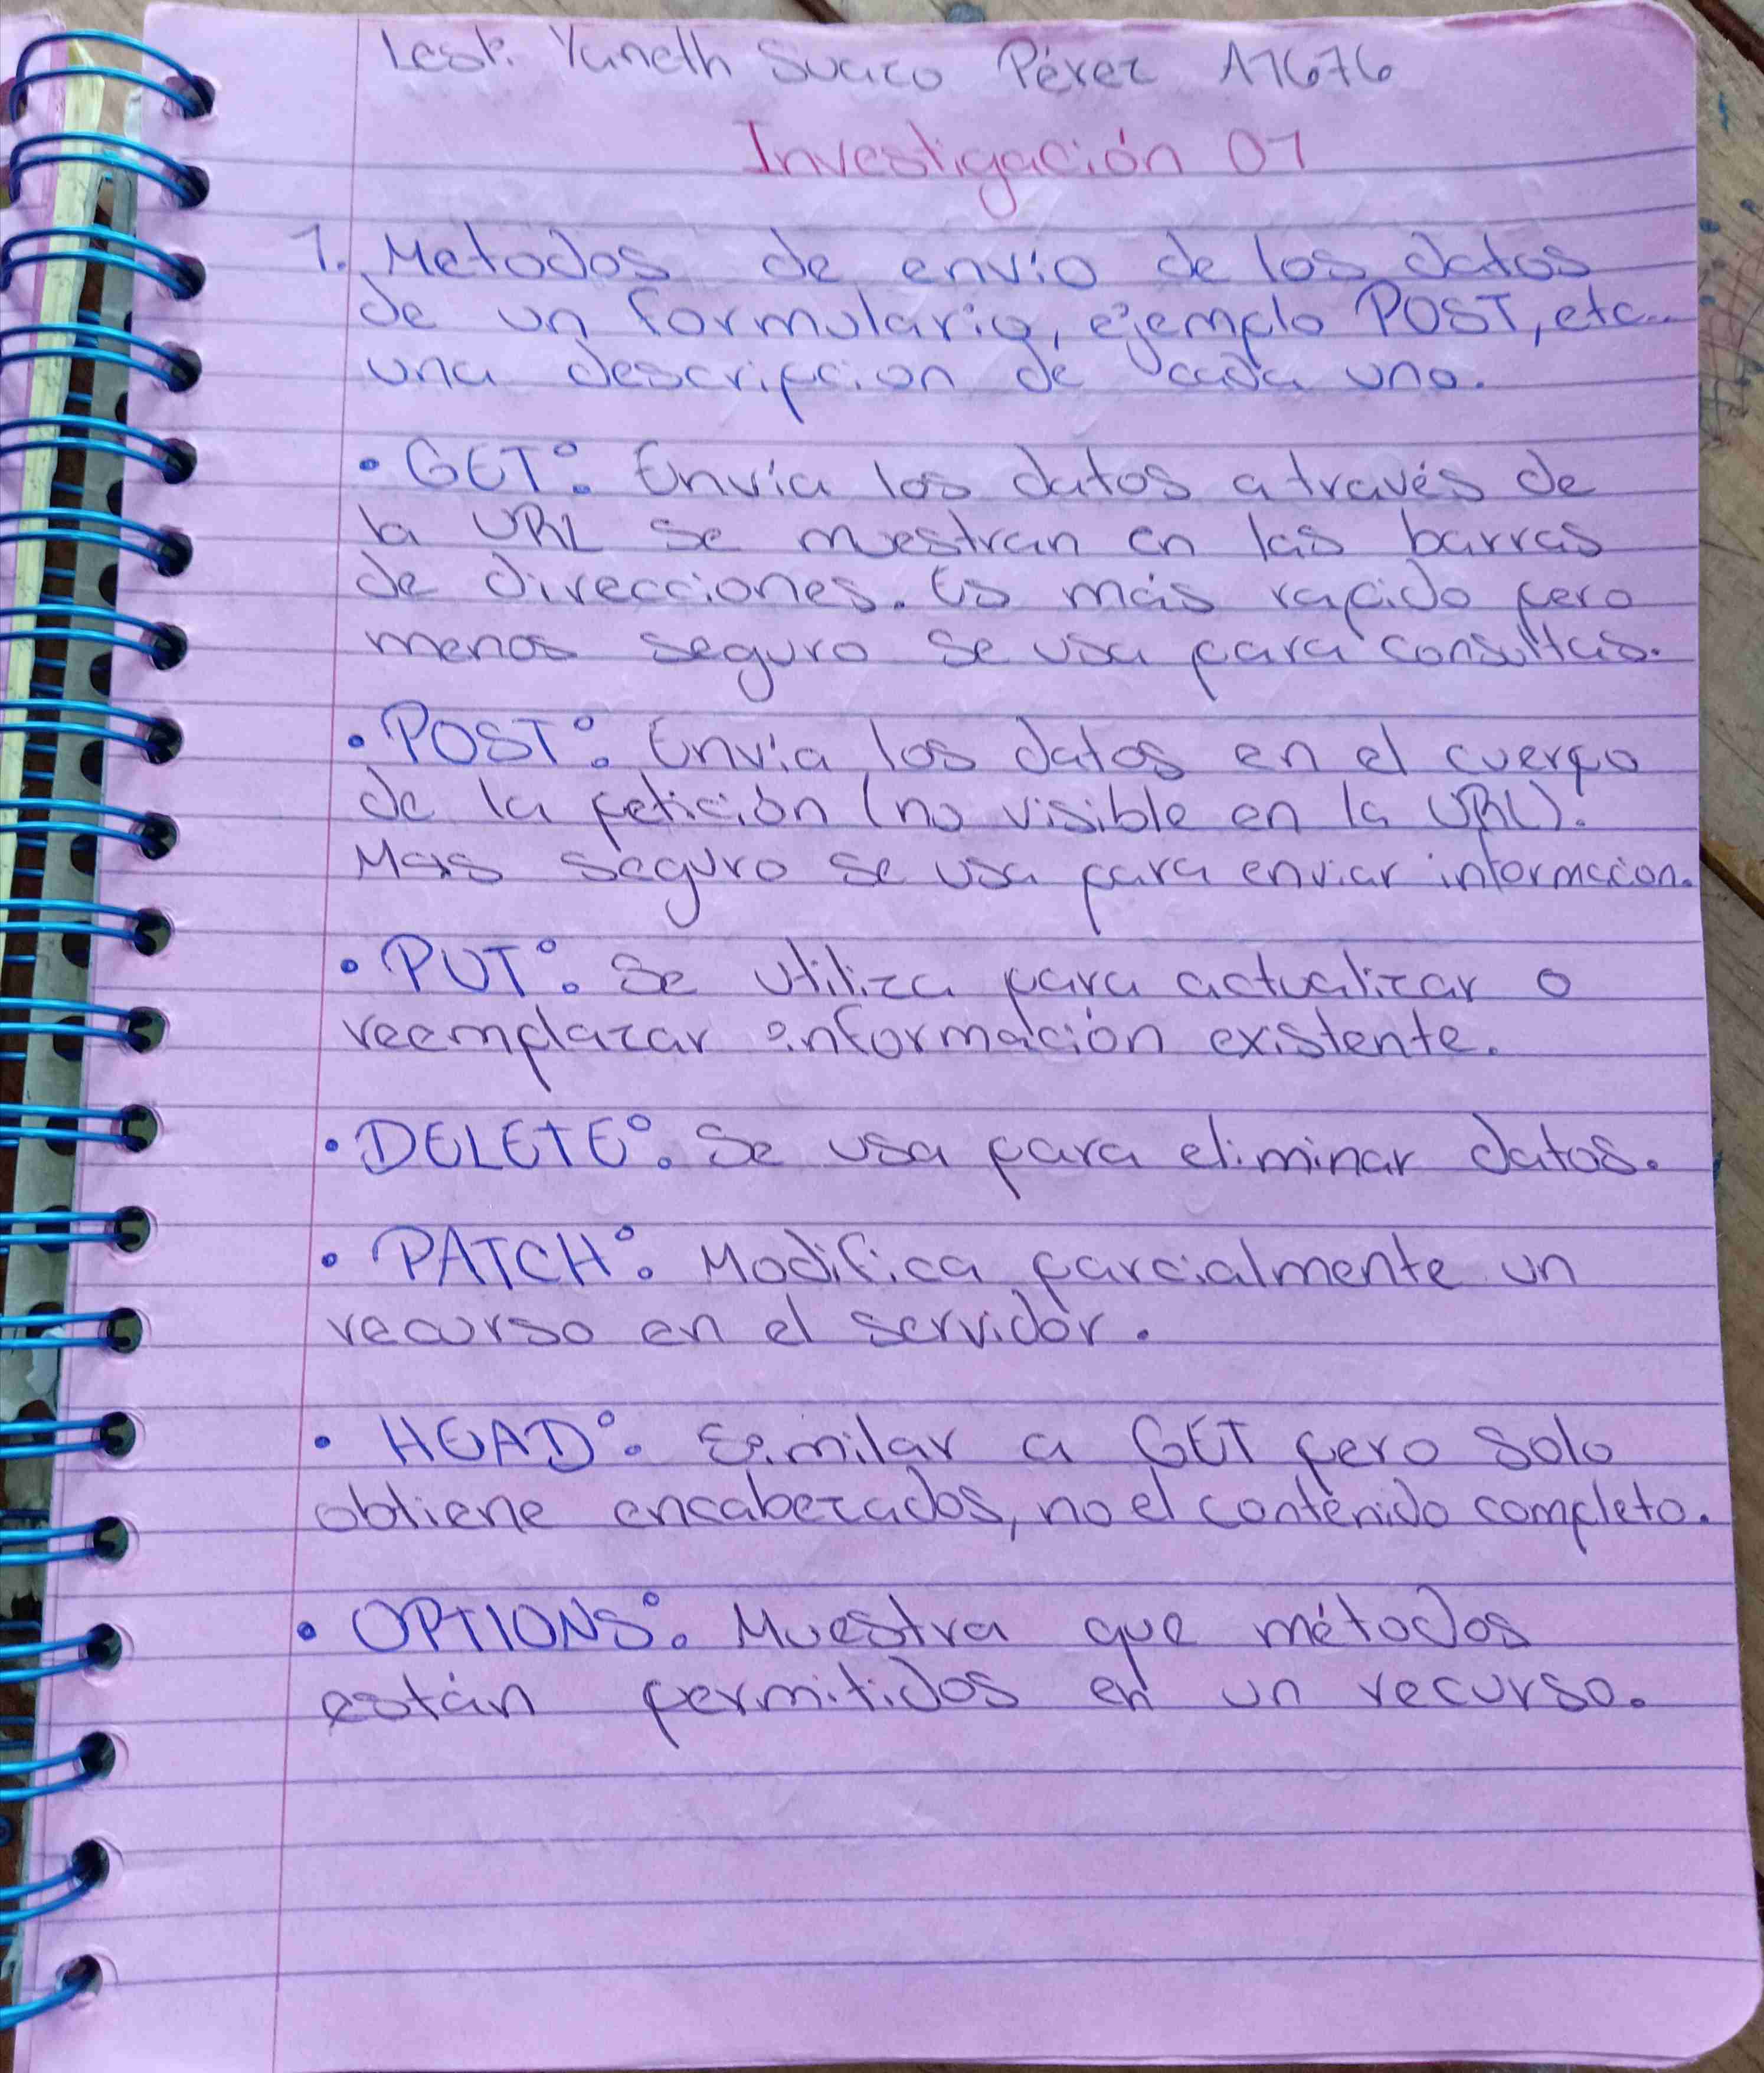 Lesli Yaneth Suazo Pérez 17676
Investigación 01
1. Metodos de envio de los datos
de un formulario, ejemplo POST, etc...
una descripcion de cada uno.
• GET: Envía los datos a través de
la URL se muestran en las barras
de direcciones. Es más rapido pero
menos seguro se usa para consultas.
• POST: Envía los datos en el cuerpo
de la petición (no visible en la URL).
Mas seguro se usa para enviar informacion.
• PUT: Se utiliza para actualizar o
reemplazar información existente.
• DELETE: Se usa para eliminar datos.
• PATCH: Modifica parcialmente un
recurso en el servidor.
• HEAD: Similar a GET pero solo
obtiene encabezados, no el contenido completo.
• OPTIONS: Muestra que métodos
están permitidos en un recurso.